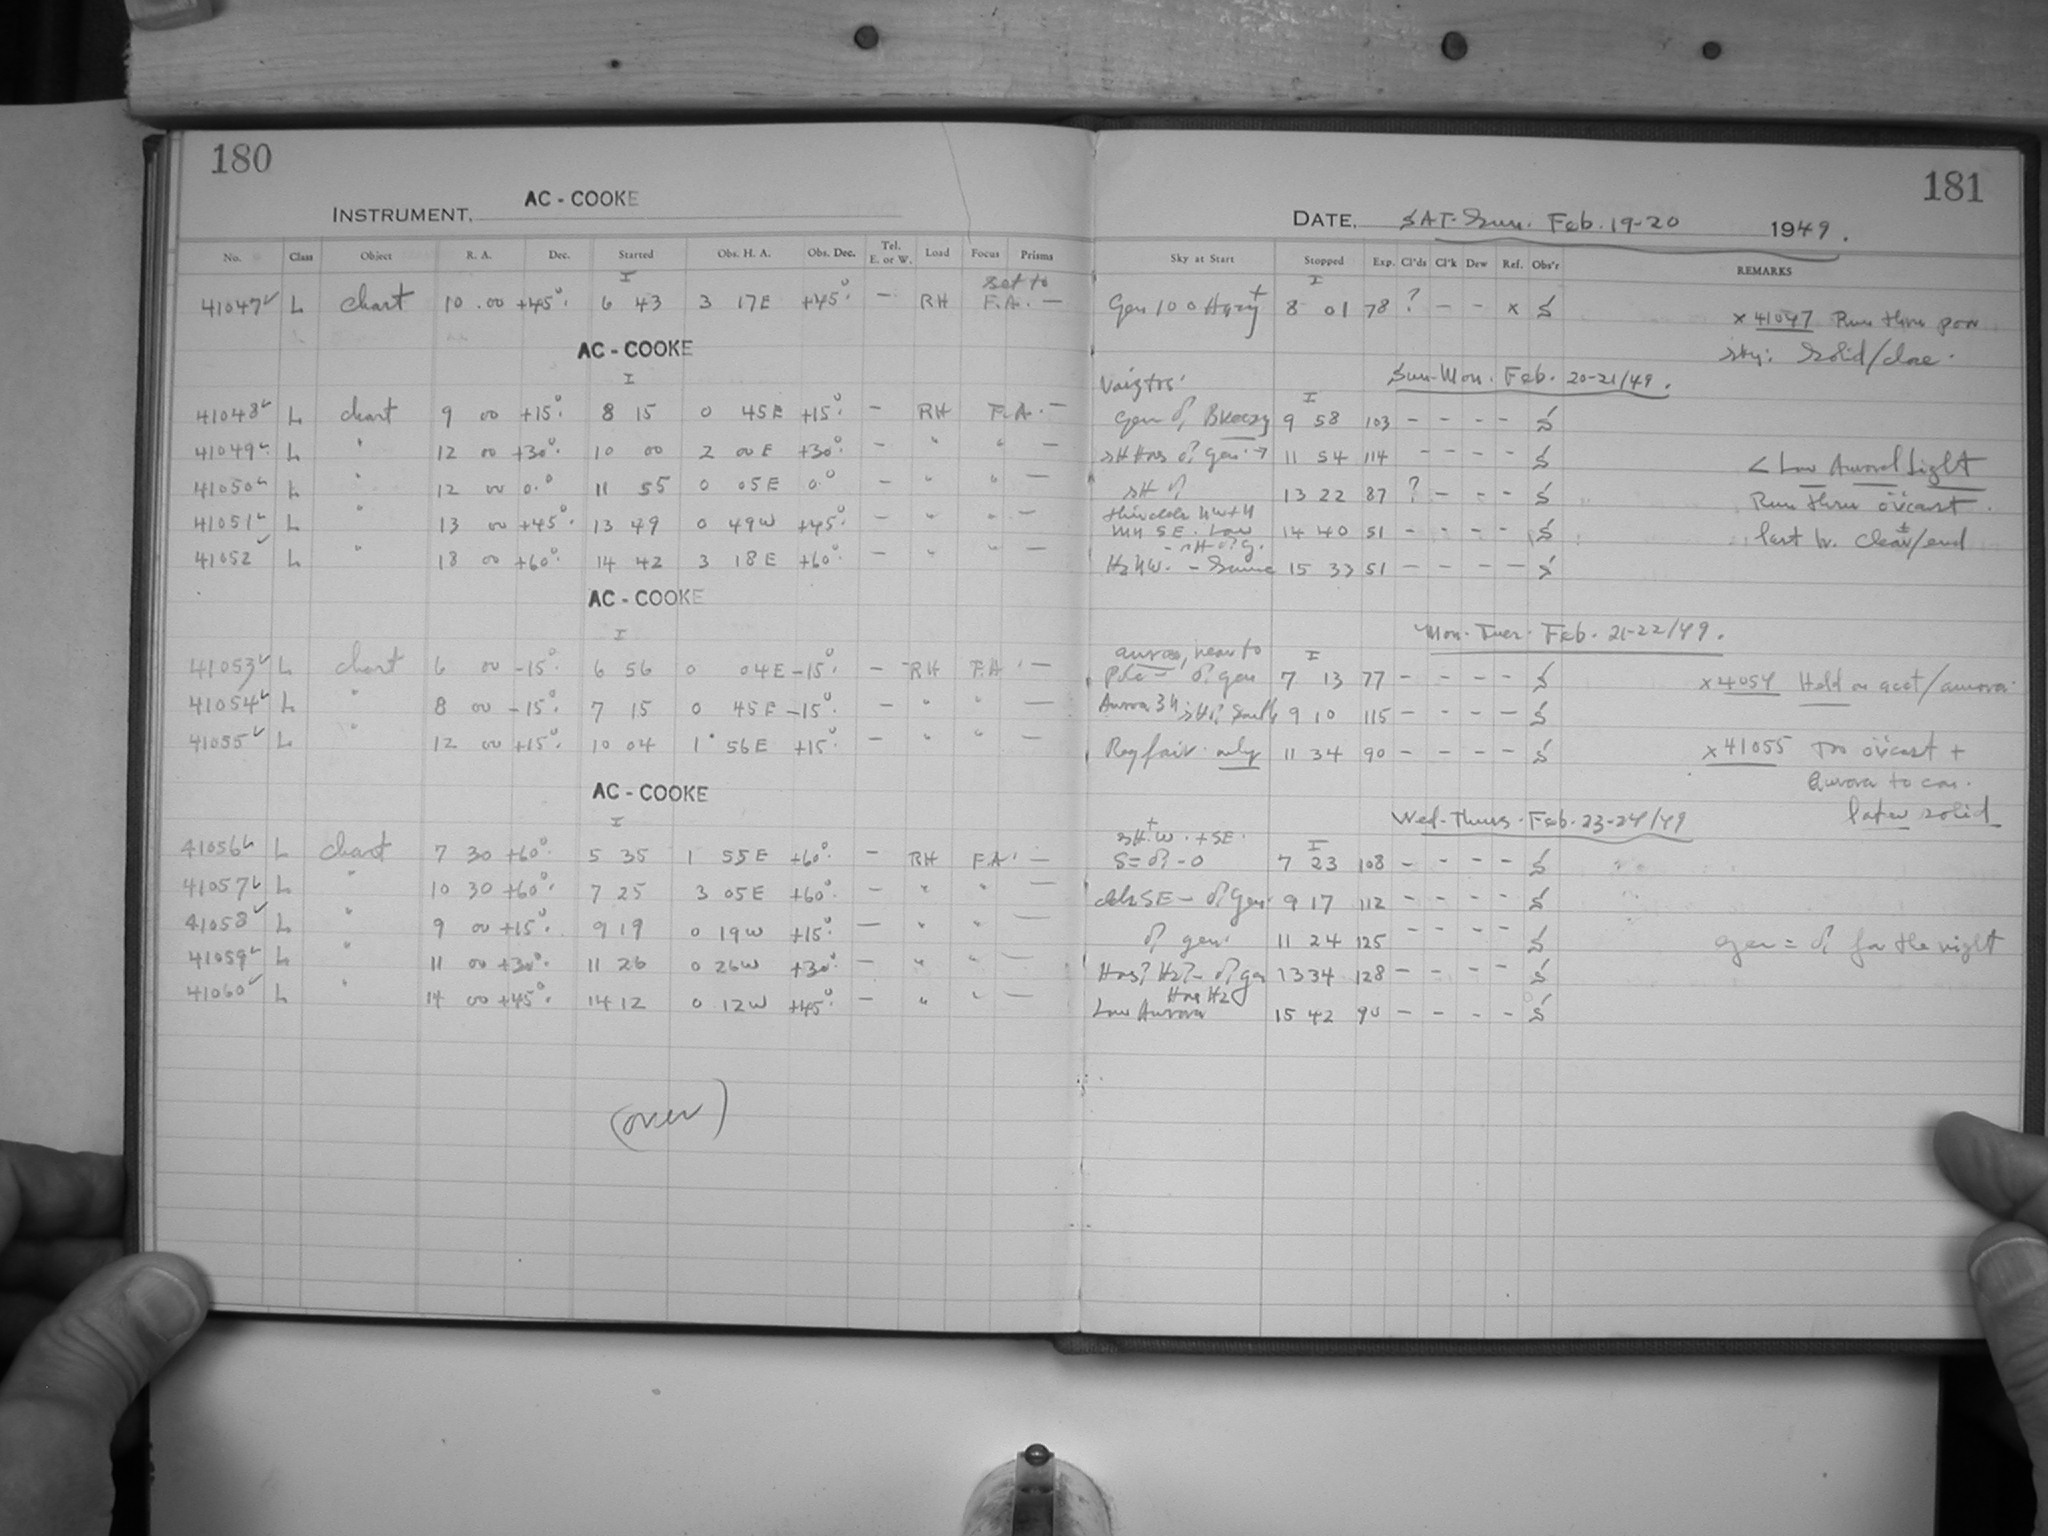 180
INSTRUMENT, AC - COOKE
No. Class Object R. A. Dec. Started Obs. H. A. Obs. Dec. Tel. E. or W. Load Focus Prisms
I set to
41047 L chart 10 .00 +45° 6 43 3 17E +45° — RH F.A. —
AC - COOKE
I
41048 L chart 9 00 +15° 8 15 0 45E +15° — RH F.A. —
41049 L " 12 00 +30° 10 00 2 00E +30° — " " —
41050 L " 12 00 0.° 11 55 0 05E 0° — " " —
41051 L " 13 00 +45° 13 49 0 49W +45° — " " —
41052 L " 18 00 +60° 14 42 3 18E +60° — " " —
AC - COOKE
I
41053 L chart 6 00 -15° 6 56 0 04E -15° — RH F.A. —
41054 L " 8 00 -15° 7 15 0 45E -15° — " " —
41055 L " 12 00 +15° 10 04 1 56E +15° — " " —
AC - COOKE
I
41056 L chart 7 30 +60° 5 35 1 55E +60° — RH F.A. —
41057 L " 10 30 +60° 7 25 3 05E +60° — " " —
41058 L " 9 00 +15° 9 19 0 19W +15° — " " —
41059 L " 11 00 +30° 11 26 0 26W +30° — " " —
41060 L " 14 00 +45° 14 12 0 12W +45° — " " —
(over)
181
DATE, SAT-Sun. Feb. 19-20 1949.
Sky at Start Stopped Exp. Cl'ds Cl'k Dew Ref. Obs'r REMARKS
I
Gen 10 0 Hazy+ 8 01 78 ? - - x S x 41047 Run thru poor
sky: Solid/close.
Sun-Mon. Feb. 20-21/49.
I
Gen Breezy 9 58 103 - - - - S
gen. 11 54 114 - - - - S < Low Auroral Light
sH 13 22 87 ? - - - S Run thru o'cast.
SE. Low 14 40 51 - - - - S last hr. clear±/end
HzNW. - Same 15 33 51 - - - - S
Mon. Tues. Feb. 21-22/49.
aurora, near to I
gen 7 13 77 - - - - S x 4054 Held on acct/aurora.
Aurora South 9 10 115 - - - - S
Reg fair only 11 34 90 - - - - S x 41055 Too o'cast +
Aurora to con.
later solid
Wed-Thurs. Feb. 23-24/49
sH+W. + SE. I
7 23 108 - - - - S
SE - gen. 9 17 112 - - - - S
gen. 11 24 125 - - - - S gen = for the night
Hz? - gen 13 34 128 - - - - S
Hz
Low Aurora 15 42 90 - - - - S